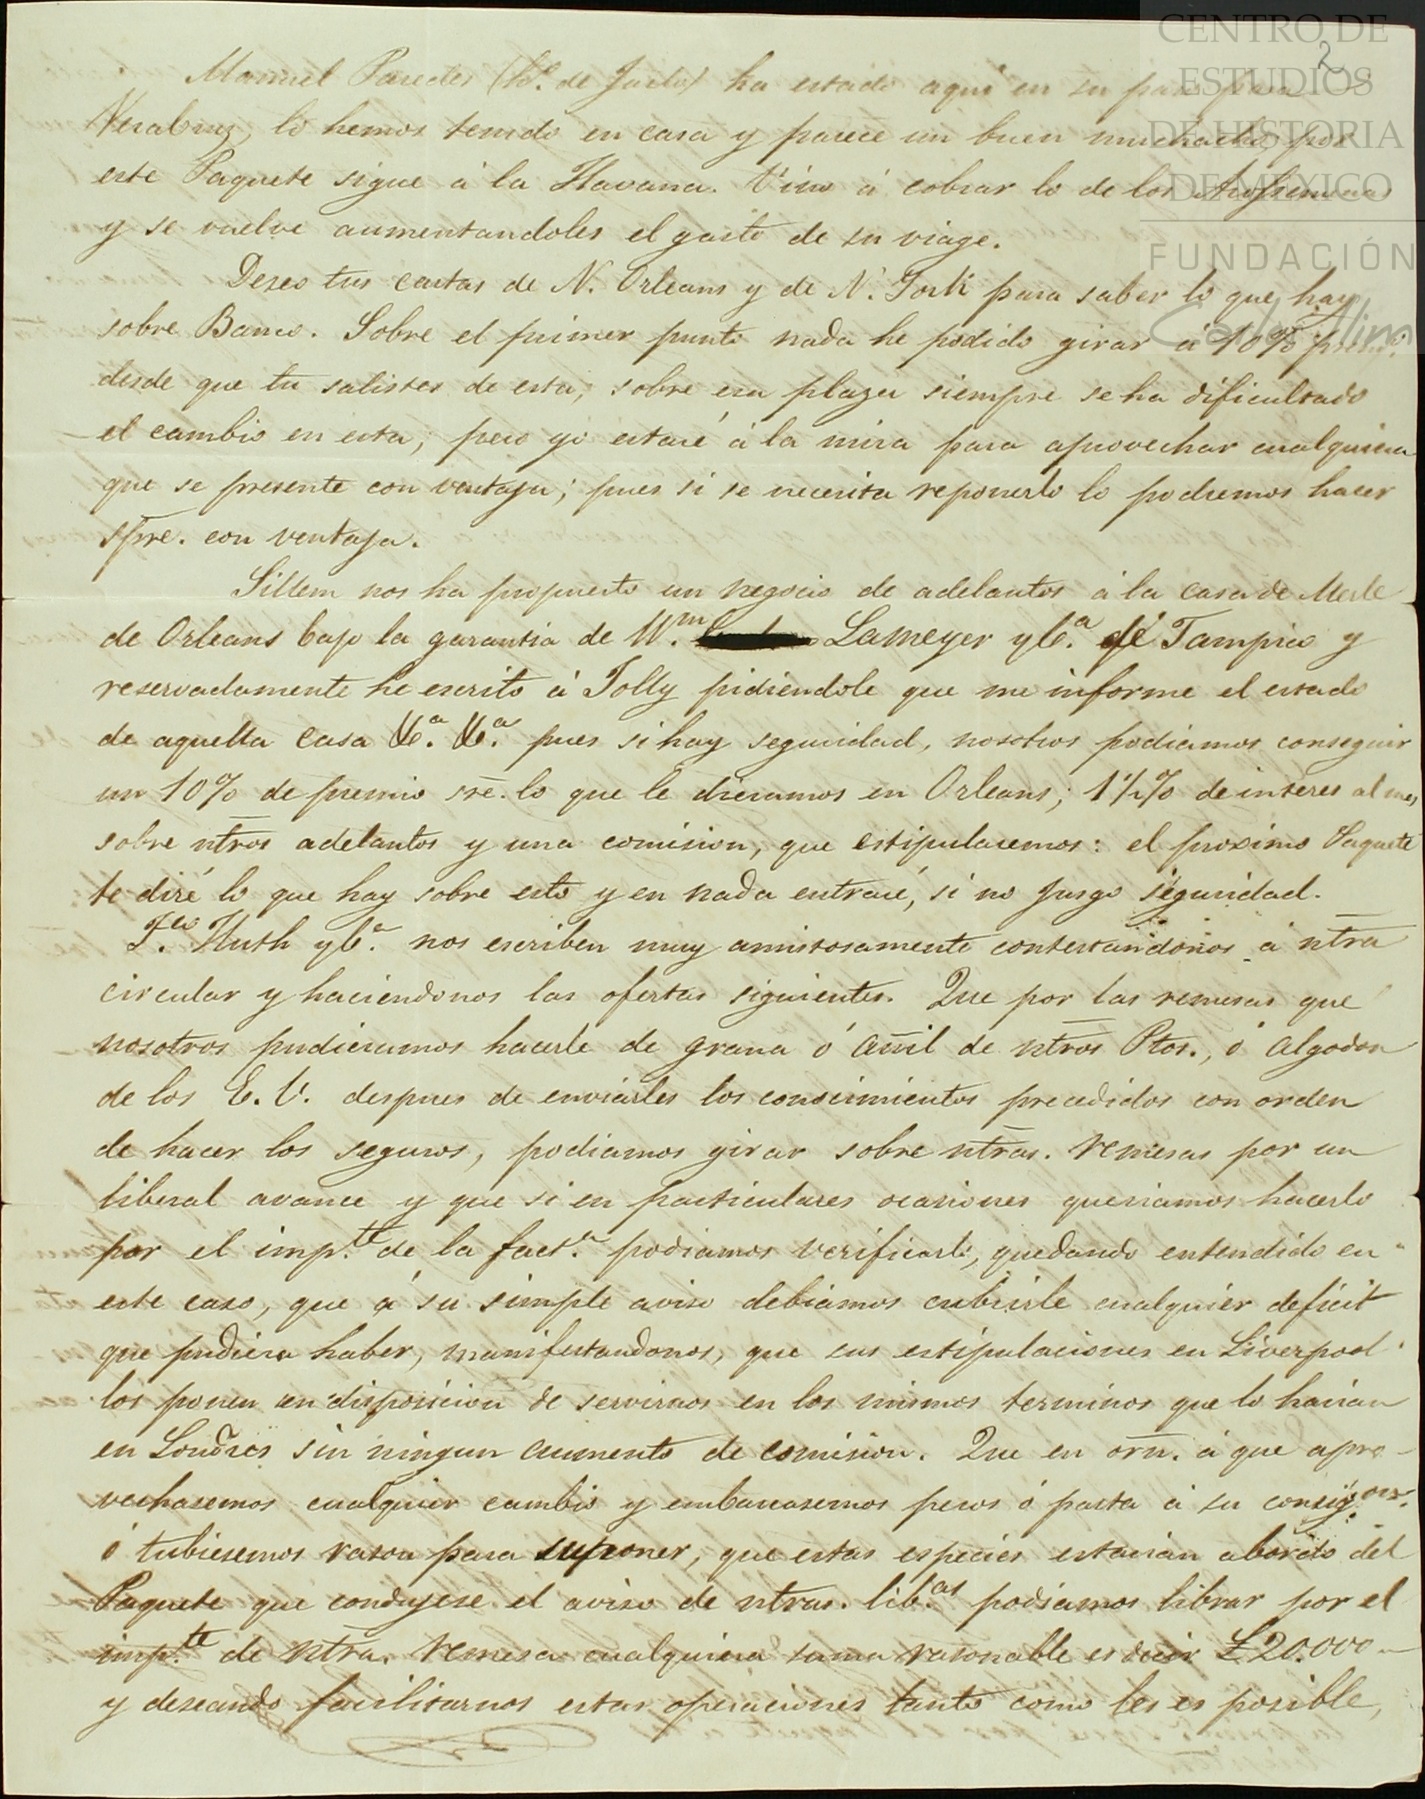 CENTRO DE
ESTUDIOS
DE HISTORIA
DE MÉXICO
FUNDACIÓN
Carlos Slim
2
Manuel Paredes (h.º de Justo) ha estado aqui en su paso para
Veracruz, lo hemos tenido en casa y parece un buen muchacho por
este Paquete sigue á la Havana. Vino á cobrar lo de los
y se vuelve aumentandoles el gasto de su viage.
Deseo tus cartas de N. Orleans y de N. York para saber lo que hay
sobre Banco. Sobre el primer punto nada he podido girar á 10% premº.
desde que tu salistes de esta, sobre esa plaza siempre se ha dificultado
el cambio en esta; pero yo estaré á la mira para aprovechar cualquiera
que se presente con ventaja; pues si se necesita reponerlo lo podremos hacer
spre. con ventaja.
Sillem nos ha propuesto un negocio de adelantos á la casa de Merle
de Orleans bajo la garantia de Wm. Lameyer yCª. de Tampico y
reservadamente he escrito á Jolly pidiéndole que me informe el estado
de aquella casa &ª. &ª. pues si hay seguridad, nosotros podiamos conseguir
un 10% de premio sre. lo que le dieramos en Orleans; 1½% de interes al mes
sobre ntros adelantos y una comision, que estipularemos: el proximo Paquete
te diré lo que hay sobre esto y en nada entraré, si no jusgo seguridad.
F.co Huth yCª. nos escriben muy amistosamente contestandonos á ntra
circular y haciendonos las ofertas siguientes. Que por las remesas que
nosotros pudieramos hacerle de grana ó añil de ntros Ptos., ó algodon
de los E. U. despues de enviarles los conocimientos precedidos con orden
de hacer los seguros, podiamos girar sobre ntras. remesas por un
liberal avance y que si en particulares ocasiones queriamos hacerlo
por el imp.te de la fact.ª podiamos verificarlo, quedando entendido en
este caso, que á su simple aviso debiamos cubrirle cualquier deficit
que pudiera haber, manifestandonos, que sus estipulaciones en Liverpool
los ponen en disposicion de servirnos en los mismos terminos que lo harian
en Londres sin ningun aumento de comision. Que en orn. á que apro-
vechasemos cualquier cambio y embarcasemos pesos ó pasta á su consig.on.
ó tubiesemos rason para suponer, que estas especies estarian abordo del
Paquete que condujese el aviso de ntras. lib.as podiamos librar por el
imp.te de ntra. remesa cualquiera suma rasonable es decir £20.000-
y deseando facilitarnos estas operaciones tanto como les es posible,